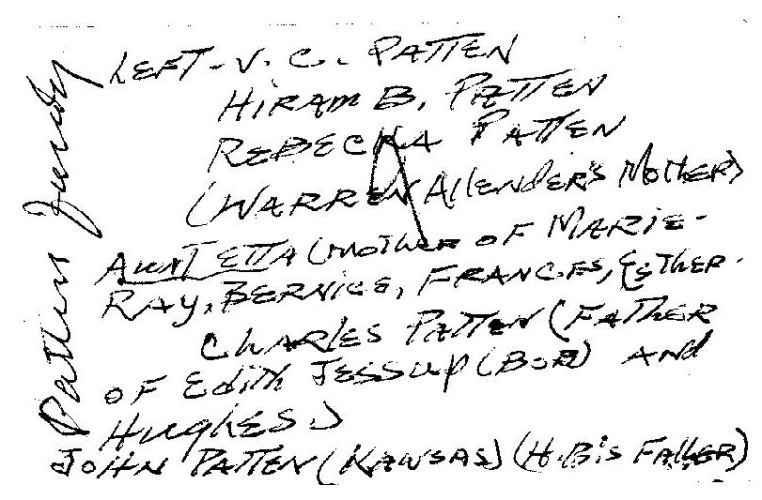 LEFT - V. C. PATTEN
HIRAM B. PATTEN
REBECKA PATTEN
(WARREN ALLENDER'S MOTHER)
AUNT ETTA (MOTHER OF MARIE -
RAY, BERNICE, FRANCES, ESTHER.
CHARLES PATTEN (FATHER
OF Edith JESSUP (BOB) AND
HUGHES)
JOHN PATTEN (KANSAS) (H.B's FATHER)
Patten